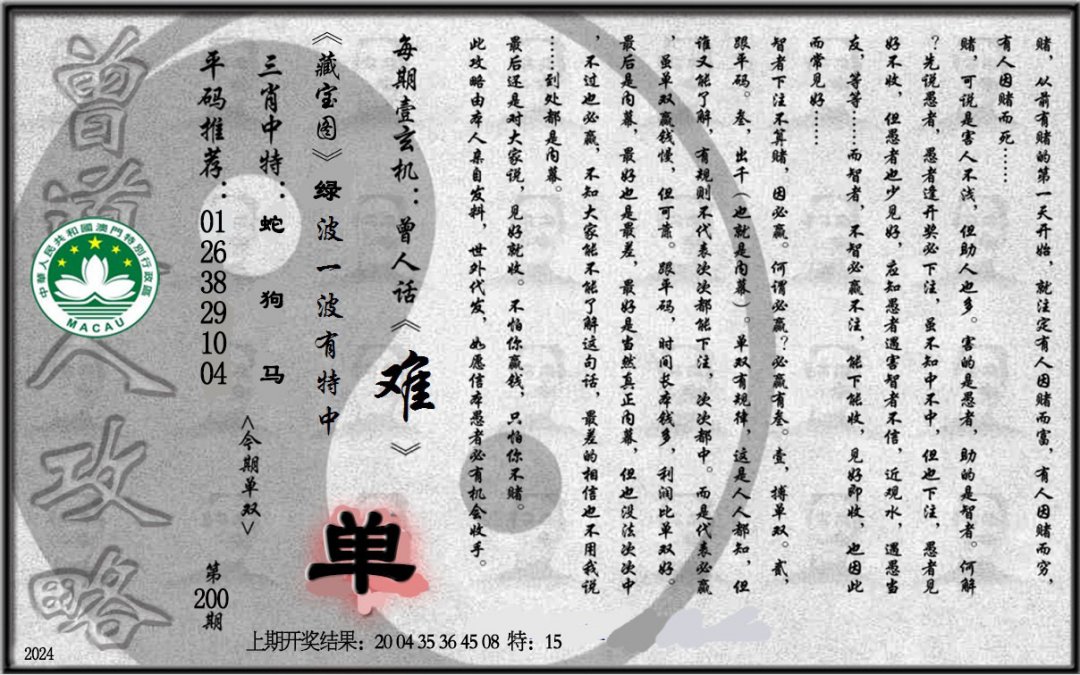 赌，从前有赌的第一天开始，就注定有人因赌而富，有人因赌而穷，
有人因赌而死……
赌，可说是害人不浅，但助人也多。害的是愚者，助的是智者。何解
？先说愚者，愚者逢开奖必下注，虽不知中不中，但也下注，愚者见
好不收，但愚者也少见好，应知愚者遇害智者不信，近观水，遇愚当
友，等等……而智者，不智必赢不注，能下能收，见好即收，也因此
而常见好……
智者下注不算赌，因必赢。何谓必赢？必赢有叁。壹，搏单双。贰，
跟平码。叁，出千（也就是内幕）。单双有规律，这是人人都知，但
谁又能了解，有规则不代表次次都能下注，次次都中。而是代表必赢
，虽单双赢钱慢，但可靠。跟平码，时间长本钱多，利润比单双好。
最后是内幕，最好也是最差，最好是当然真正内幕，但也没法次次中
，不过也必赢，不知大家能不能了解这句话，最差的相信也不用我说
……到处都是内幕。
最后还是对大家说，见好就收。不怕你赢钱，只怕你不赌。
此攻略由本人亲自发料，世外代发，如愿信本愚者必有机会收手。
每期壹玄机：曾人话《难》
《藏宝图》绿波一波有特中
三肖中特：蛇 狗 马
平码推荐：01 26 38 29 10 04
<今期单双>
单
第200期
曾道人攻略
中華人民共和國澳門特別行政區
MACAU
上期开奖结果：20 04 35 36 45 08 特：15
2024